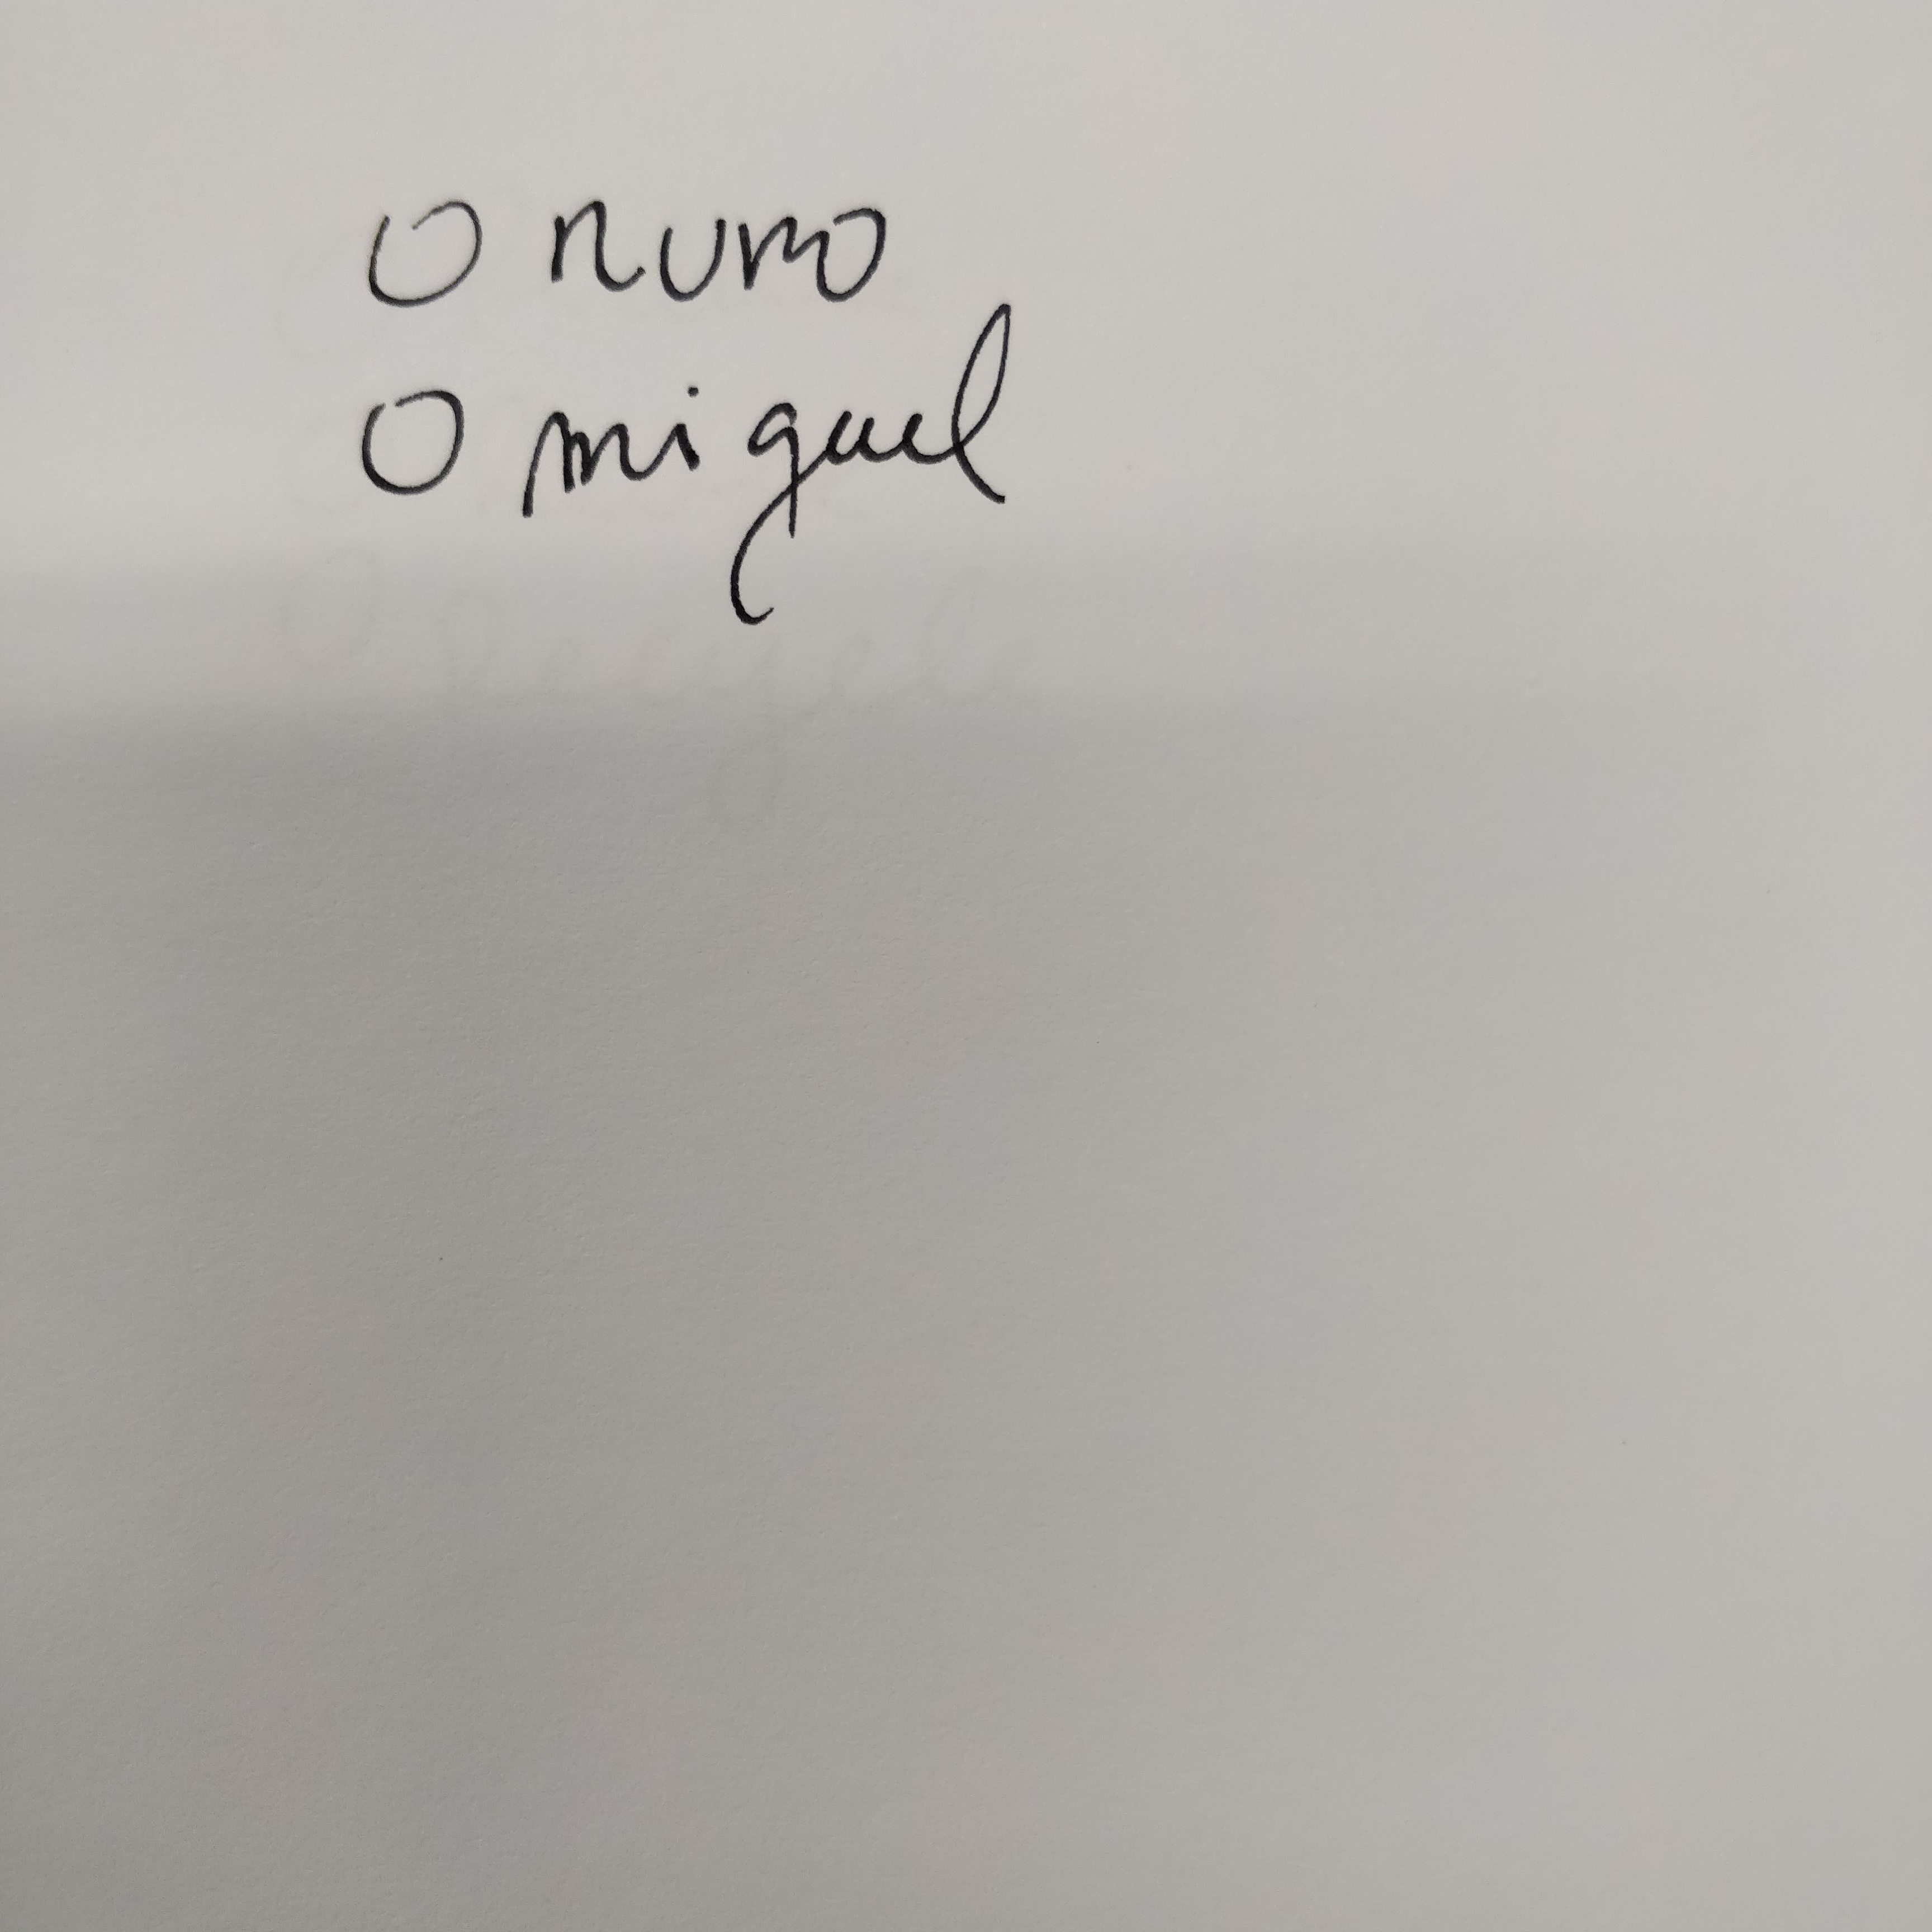 O nuno
O miguel